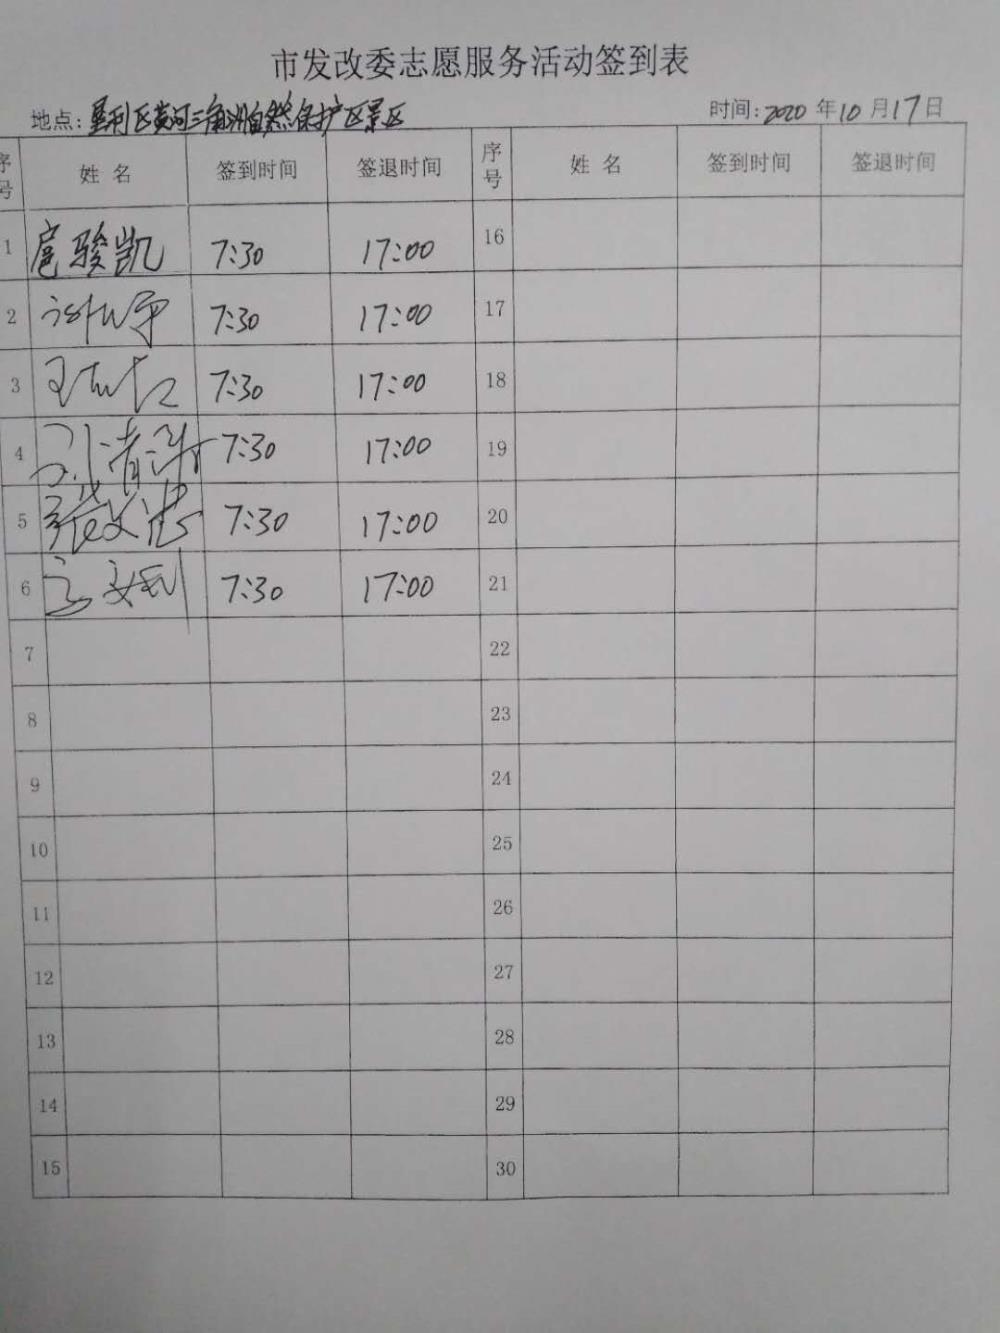 市发改委志愿服务活动签到表
地点:垦利区黄河三角洲自然保护区景区 时间:2020年10月17日
序号 姓名 签到时间 签退时间 序号 姓名 签到时间 签退时间
1 扈骏凯 7:30 17:00 16
2 7:30 17:00 17
3 7:30 17:00 18
4 7:30 17:00 19
5 张文浩 7:30 17:00 20
6 7:30 17:00 21
7 22
8 23
9 24
10 25
11 26
12 27
13 28
14 29
15 30